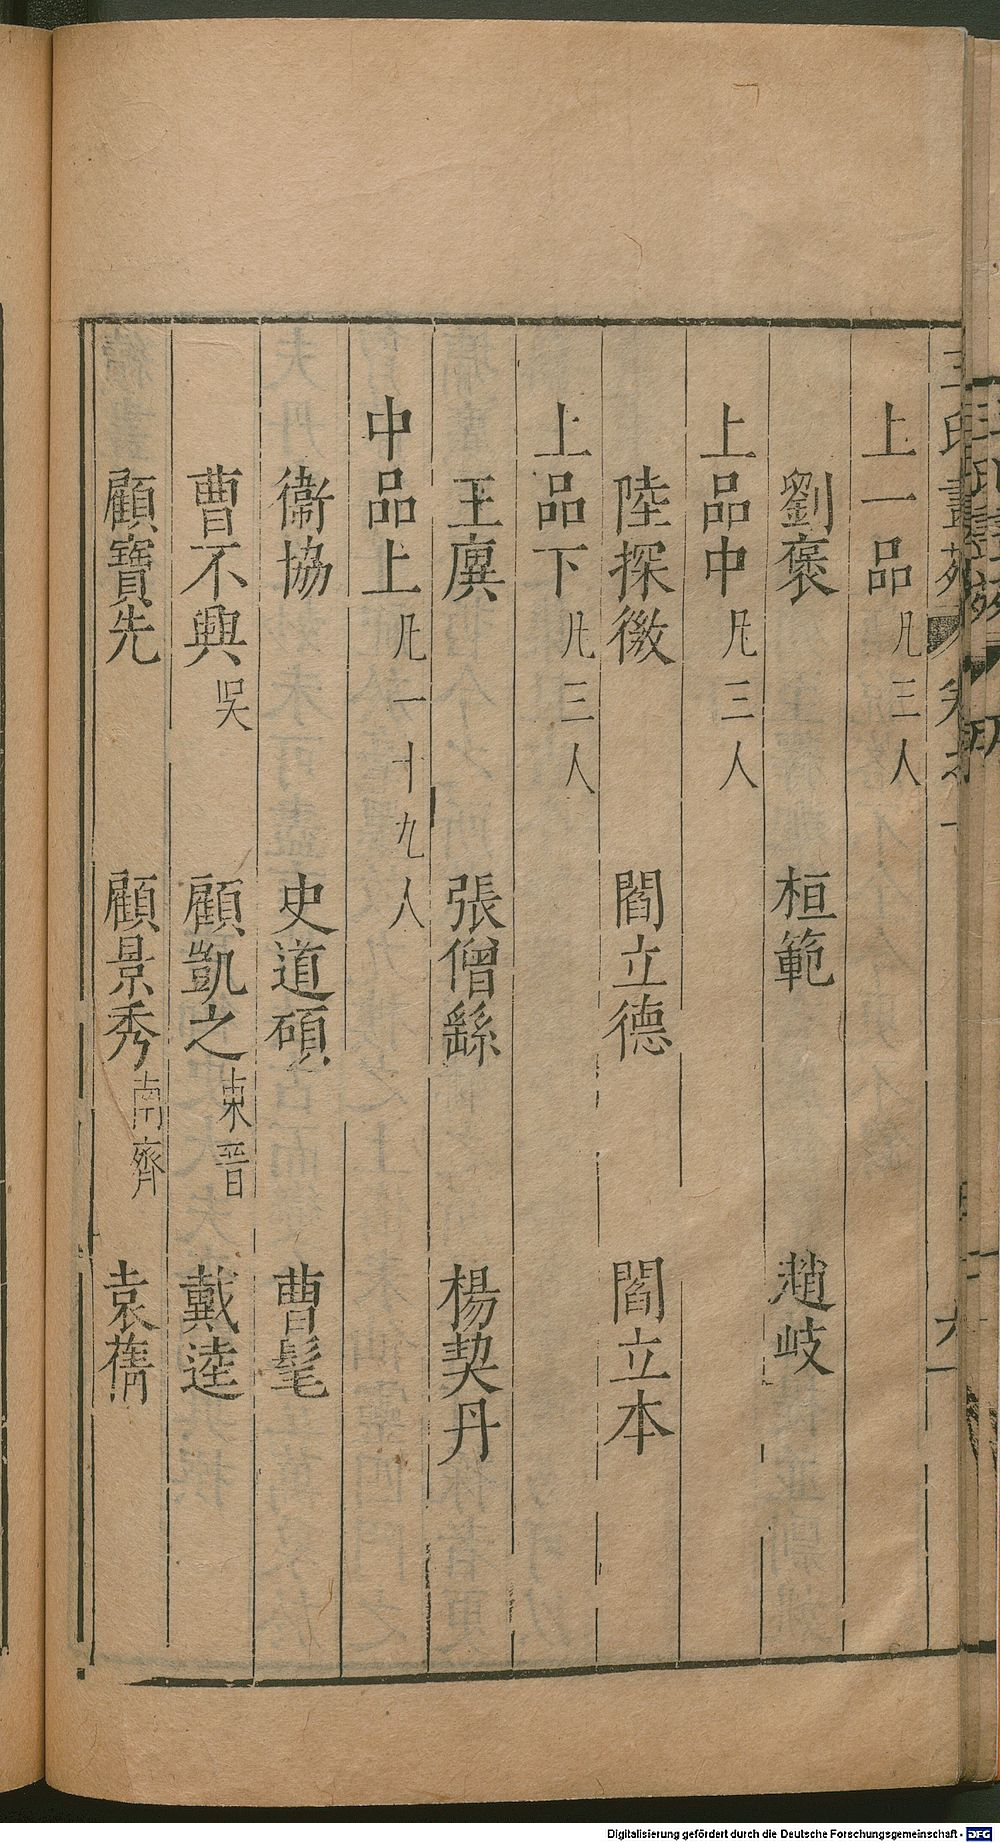 上一品凡三人
劉褒　桓範　趙岐
上品中凡三人
陸探微　閻立德　閻立本
上品下凡三人
王廙　張僧繇　楊契丹
中品上凡一十九人
衞協　史道碩　曹髦
曹不興吳　顧凱之東晉　戴逵
顧寶先　顧景秀南齊　袁蒨
Digitalisierung gefördert durch die Deutsche Forschungsgemeinschaft - DFG